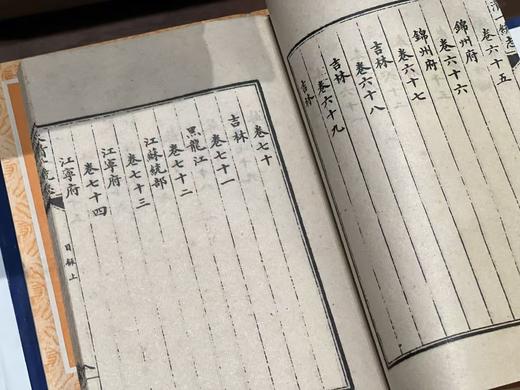 一統志
卷六十五
錦州府
卷六十六
錦州府
卷六十七
吉林
卷六十八
吉林
卷六十九
吉林
卷七十
吉林
卷七十一
黑龍江
卷七十二
江蘇統部
卷七十三
江寧府
卷七十四
江寧府
目錄上